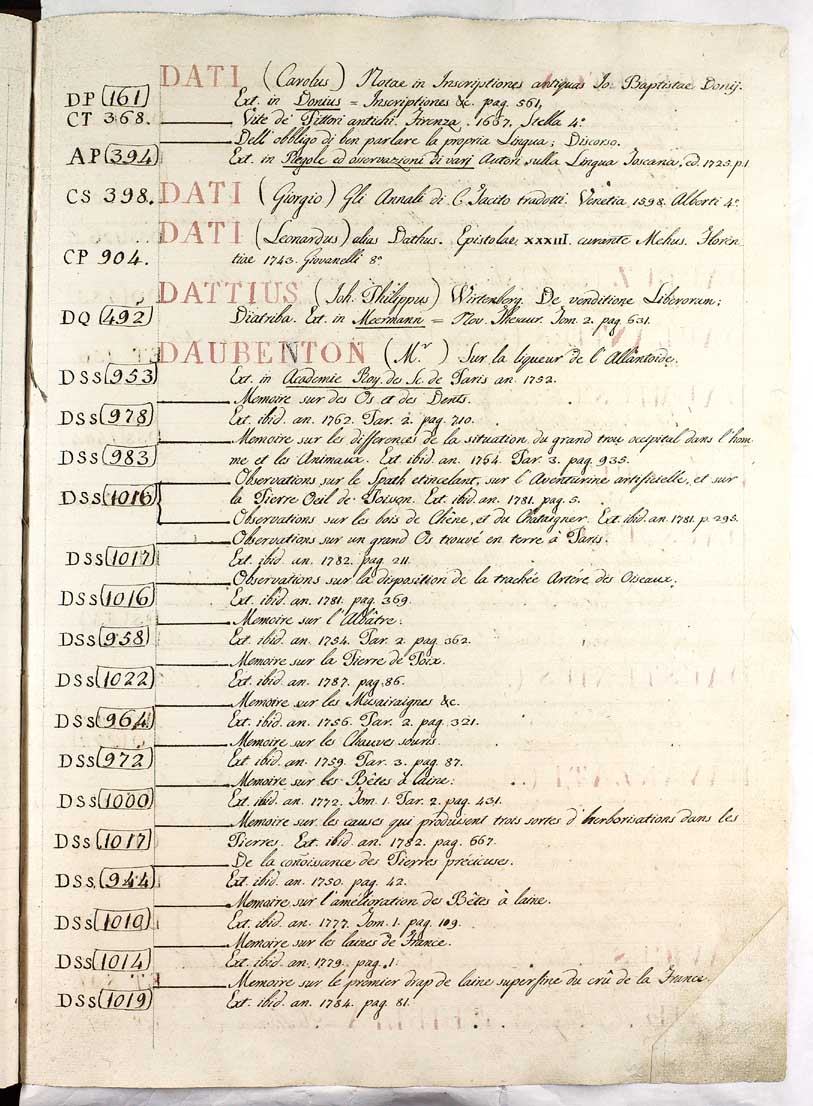 DATI (Carolus) Notae in Inscriptiones antiquas Io. Baptistae Donij.
DP 161 Ext. in Donius = Inscriptiones &c. pag. 561.
CT 368. Vite de' Pittori antichi. Firenza. 1667. Stella 4°
Dell' obbligo di ben parlare la propria Lingua; Discorso.
AP 394 Ext. in Regole ed osservazioni di varj Autori sulla Lingua Toscana, ed. 1725. p. 1
CS 398. DATI (Giorgio) Gli Annali di C. Tacito tradotti. Venetia 1598. Alberti 4°
DATI (Leonardus) alias Dathus. Epistolae XXXIII. curante Mehus. Floren-
CP 904. tiae 1743. Giovanelli 8°
DATTIUS (Joh. Philippus) Wirtenberg. De venditione Liberorum;
DQ 492 Diatriba. Ext. in Meermann = Nov. Thesaur. Tom. 2. pag. 631.
DAUBENTON (Mr) Sur la liqueur de l'Allantoide.
DSS 953 Ext. in Academie Roy. des Sc. de Paris an. 1752.
Memoire sur des Os et des Dents.
DSS 978 Ext. ibid. an. 1762. Par. 2. pag. 710.
Memoire sur les differences de la situation du grand trou occipital dans l'hom-
DSS 983 me et les Animaux. Ext. ibid. an. 1764. Par. 3. pag. 935.
Observations sur le Spath etincelant, sur l'Aventurine artificielle, et sur
DSS 1016 la Pierre Oeil de Poisson. Ext. ibid. an. 1781. pag. 5.
Observations sur les bois de Chêne, et du Chataigner. Ext. ibid. an. 1781. p. 295.
Observations sur un grand Os trouvé en terre à Paris.
DSS 1017 Ext. ibid. an. 1782. pag. 211.
Observations sur la disposition de la trachée Artére des Oiseaux.
DSS 1016 Ext. ibid. an. 1781. pag. 369.
Memoire sur l'Albâtre.
DSS 958 Ext. ibid. an. 1754. Par. 2. pag. 362.
Memoire sur la Pierre de Poix.
DSS 1022 Ext. ibid. an. 1787. pag. 86.
Memoire sur les Musairaignes &c.
DSS 964 Ext. ibid. an. 1756. Par. 2. pag. 321.
Memoire sur les Chauves souris.
DSS 972 Ext. ibid. an. 1759. Par. 3. pag. 87.
Memoire sur les Bêtes à laine.
DSS 1000 Ext. ibid. an. 1772. Tom. 1. Par. 2. pag. 431.
Memoire sur les causes qui produisent trois sortes d'herborisations dans les
DSS 1017 Pierres. Ext. ibid. an. 1782. pag. 667.
De la connoisance des Pierres précieuses.
DSS 944 Ext. ibid. an. 1750. pag. 42.
Memoire sur l'amélioration des Bêtes à laine.
DSS 1010 Ext. ibid. an. 1777. Tom. 1. pag. 109.
Memoire sur les laines de France.
DSS 1014 Ext. ibid. an. 1779. pag. 1.
Memoire sur le premier drap de laine superfine du crû de la France.
DSS 1019 Ext. ibid. an. 1784. pag. 81.